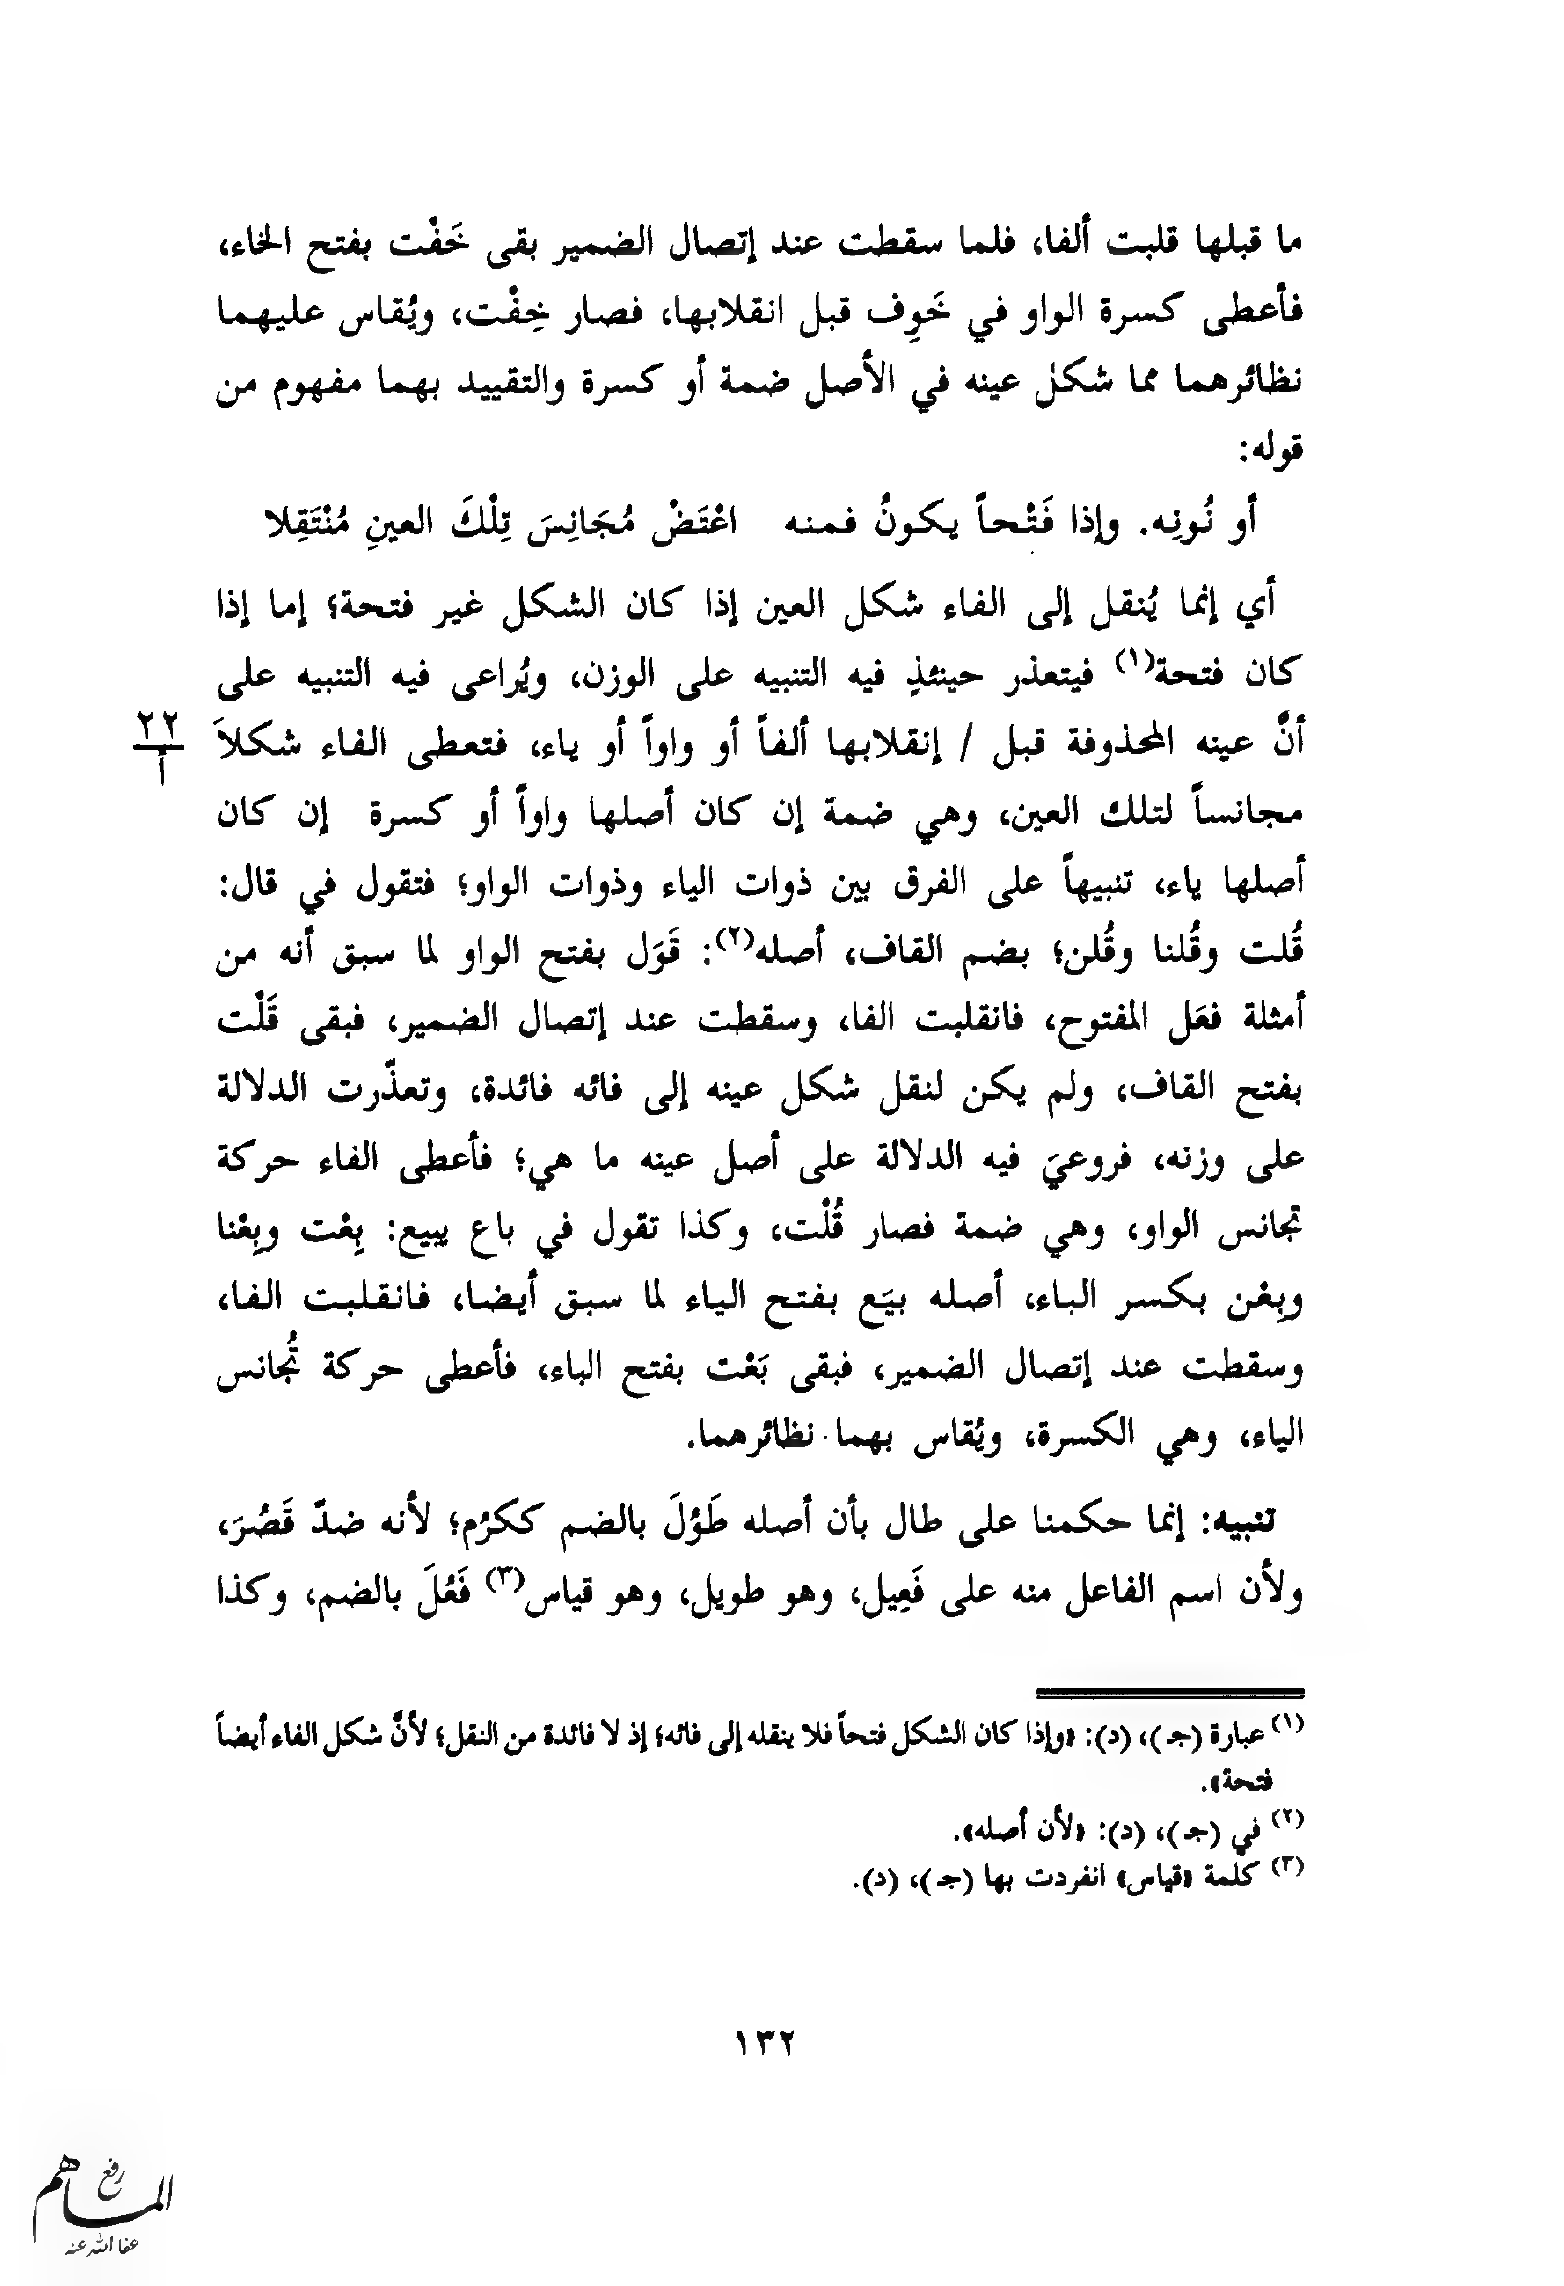 ما قبلها قلبت ألفا، فلما سقطت عند إتصال الضمير بقى خَفْت بفتح الخاء،
فأعطى كسرة الواو في خَوِف قبل انقلابها، فصار خِفْت، ويُقاس عليهما
نظائرهما مما شكل عينه في الأصل ضمة أو كسرة والتقييد بهما مفهوم من
قوله:
أو نُونِه. وإذا فَتْحاً يكونُ فمنه اعْتَضْ مُجَانِسَ تِلْكَ العينِ مُنْتَقِلا
أي إنما يُنقل إلى الفاء شكل العين إذا كان الشكل غير فتحة؛ إما إذا
كان فتحة(١) فيتعذر حينئذٍ فيه التنبيه على الوزن، ويُراعى فيه التنبيه على
أنَّ عينه المحذوفة قبل / إنقلابها ألفاً أو واواً أو ياء، فتعطى الفاء شكلاً
٢٢
أ
مجانساً لتلك العين، وهي ضمة إن كان أصلها واواً أو كسرة إن كان
أصلها ياء، تنبيهاً على الفرق بين ذوات الياء وذوات الواو؛ فتقول في قال:
قُلت وقُلنا وقُلن؛ بضم القاف، أصله(٢): قَوَل بفتح الواو لما سبق أنه من
أمثلة فعَل المفتوح، فانقلبت الفا، وسقطت عند إتصال الضمير، فبقى قَلْت
بفتح القاف، ولم يكن لنقل شكل عينه إلى فائه فائدة، وتعذّرت الدلالة
على وزنه، فروعيَ فيه الدلالة على أصل عينه ما هي؛ فأعطى الفاء حركة
تجانس الواو، وهي ضمة فصار قُلْت، وكذا تقول في باع يبيع: بِعْت وبِعْنا
وبِعْن بكسر الباء، أصله بيَع بفتح الياء لما سبق أيضا، فانقلبت الفا،
وسقطت عند إتصال الضمير، فبقى بَعْت بفتح الباء، فأعطى حركة تُجانس
الياء، وهي الكسرة، ويُقاس بهما نظائرهما.
تنبيه: إنما حكمنا على طال بأن أصله طَوُلَ بالضم ككرُم؛ لأنه ضدّ قَصُرَ،
ولأن اسم الفاعل منه على فَعِيل، وهو طويل، وهو قياس(٣) فَعُلَ بالضم، وكذا
(١) عبارة (جـ)، (د): «وإذا كان الشكل فتحاً فلا ينقله إلى فائه؛ إذ لا فائدة من النقل؛ لأنَّ شكل الفاء أيضاً
فتحة».
(٢) في (جـ)، (د): «لأن أصله».
(٣) كلمة «قياس» انفردت بها (جـ)، (د).
١٣٢
رفع
عفا الله عنه